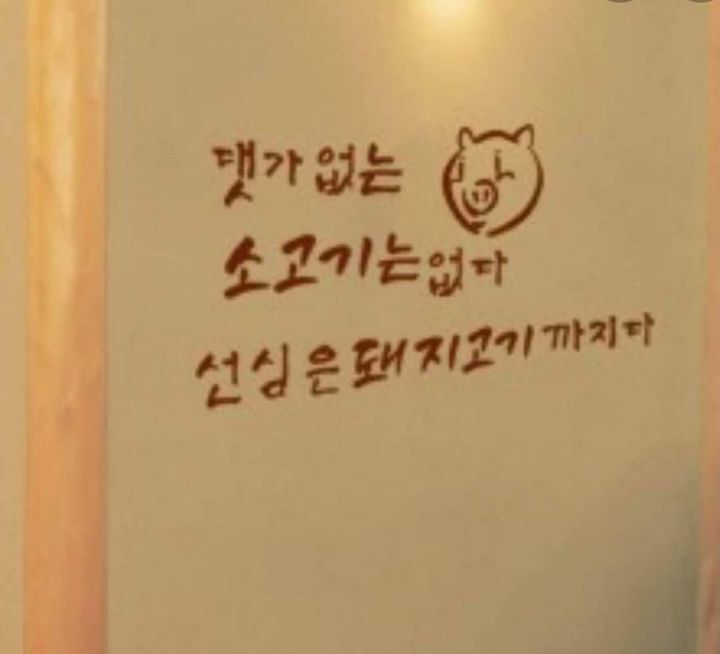 댓가 없는
소고기는 없다
선심은 돼지고기 까지다